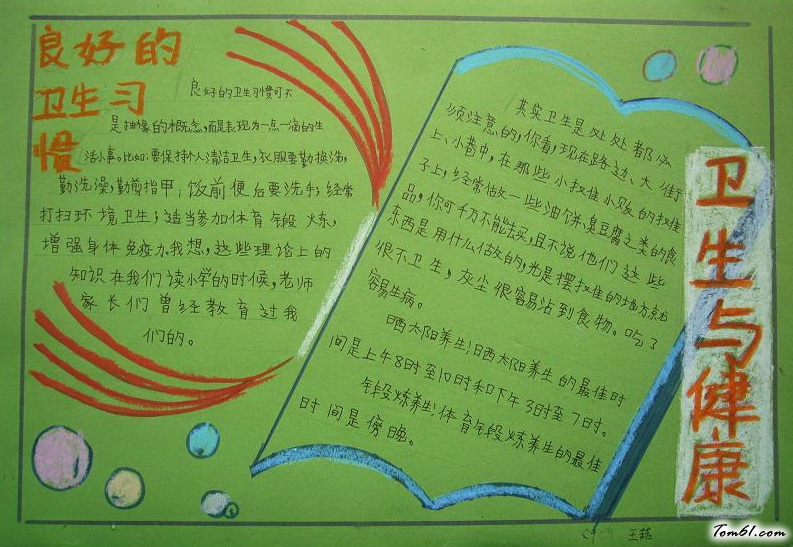 良好的
卫生习
惯
良好的卫生习惯可不
是抽像的概念,而是表现为一点一滴的生
活小事。比如:要保持个人清洁卫生,衣服要勤换洗,
勤洗澡,勤剪指甲;饭前便后要洗手;经常
打扫环境卫生;适当参加体育锻炼,
增强身体免疫力.我想,这些理论上的
知识在我们读小学的时候,老师
家长们曾经教育过我
们的。
其实卫生是处处都必
须注意的,你看,现在路边、大街
上、小巷中,在那些小摊小贩的摊
子上,经常做一些油饼、臭豆腐之类的食
品,你可千万不能去买,且不说他们这些
东西是用什么做的,光是摆摊的地方就
很不卫生,灰尘很容易沾到食物。吃了
容易生病。
晒太阳养生:晒太阳养生的最佳时
间是上午8时至10时和下午3时至7时。
锻炼养生:体育锻炼养生的最佳
时间是傍晚。
卫生与健康
Tom61.com